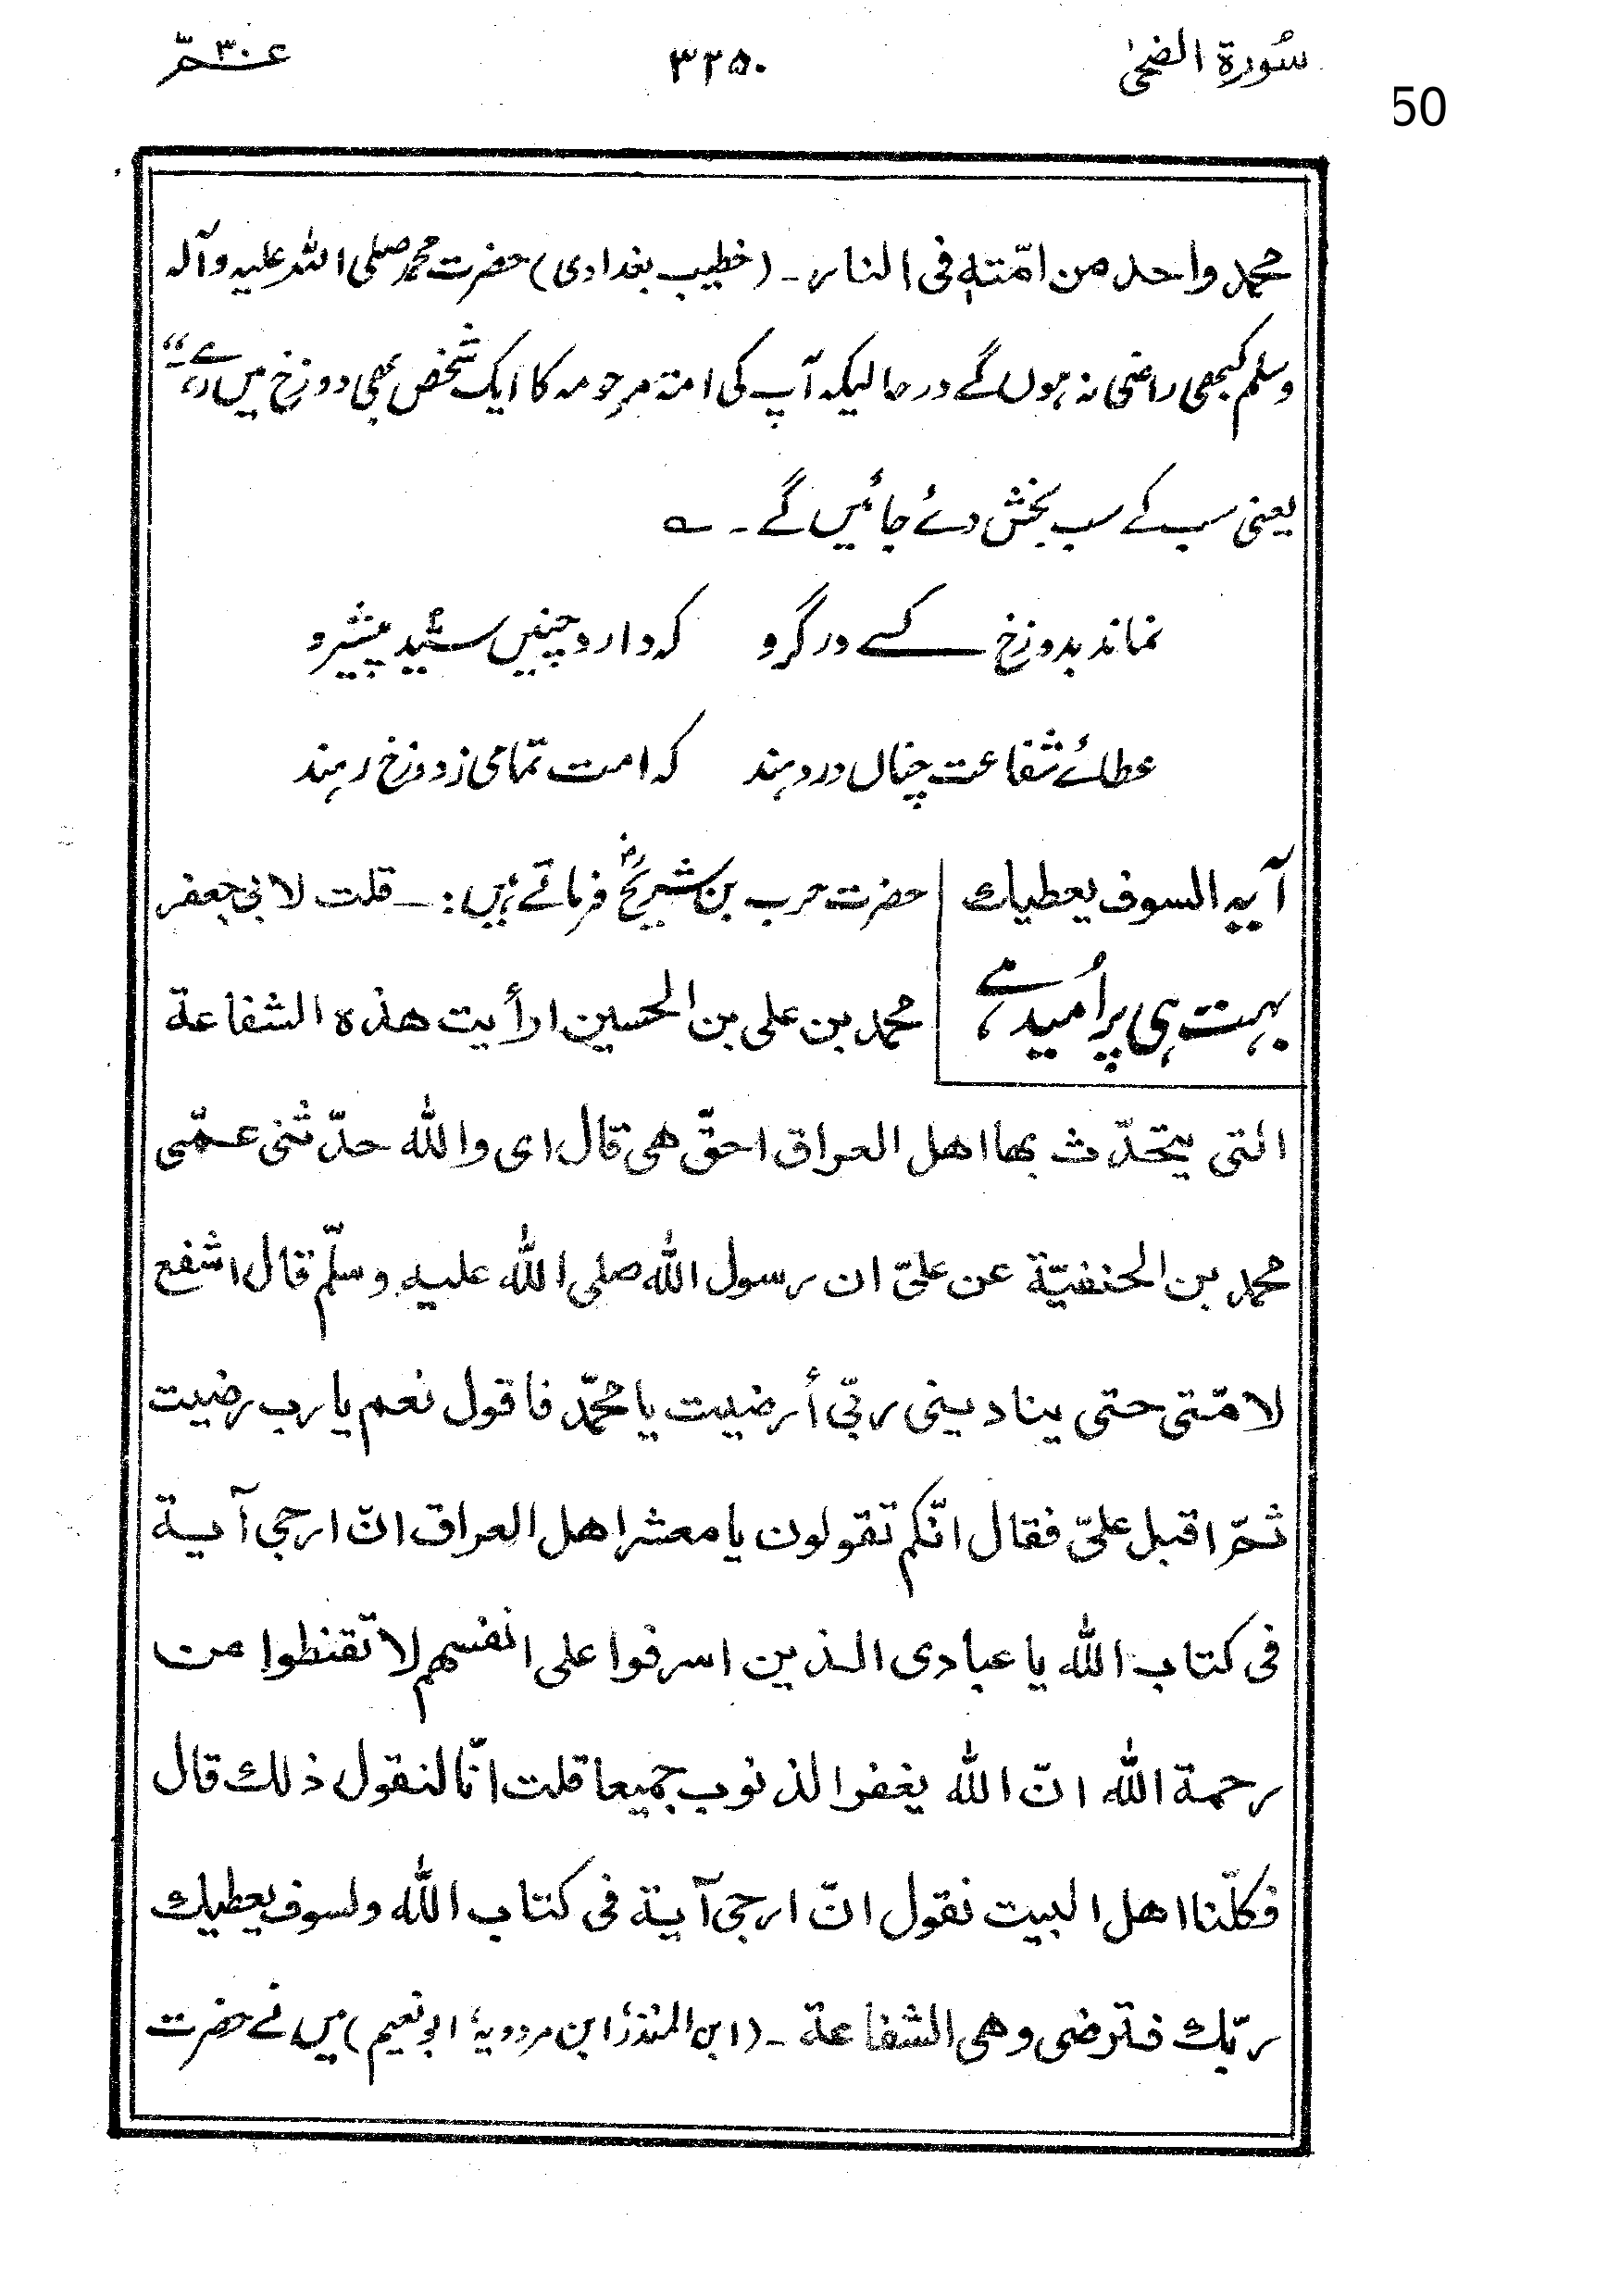 سُورۃ الضحٰی
۳۲۵۰
عـ۳۰ـمّ
50
محمد واحد من امّتہٖ فی النار۔ (خطیب بغدادی) حضرت محمد صلی اللہ علیہ وآلہ
وسلم کبھی راضی نہ ہوں گے درحالیکہ آپ کی امۃ مرحومہ کا ایک شخص بھی دوزخ میں رہے۔"
یعنی سب کے سب بخش دئے جائیں گے۔ ؎
نماند بدوزخ کسے در گرو کہ دارد چنیں سیّد پیشرو
عطائے شفاعت چناں در دہند کہ امت تمامی ز دوزخ رہند
آیہ السوف یعطیک
بہت ہی پر اُمید ہے
حضرت حرب بن شریحؓ فرماتے ہیں:۔ قلت لابی جعفر
محمد بن علی بن الحسین ارأیت ھذہ الشفاعة
التی یتحدّث بھا اھل العراق احقّ ھی قال ای واللّٰہ حدّثنی عـمّی
محمد بن الحنفیّة عن علیّ ان رسول اللّٰہ صلی اللّٰہ علیہ وسلّم قال اشفع
لامّتی حتی ینادینی ربّی أرضیت یا محمّد فاقول نعم یا رب رضیت
ثمّ اقبل علیّ فقال انّکم تقولون یا معشر اھل العراق انّ ارجی آیـة
فی کتاب اللّٰہ یا عبادی الـذین اسرفوا علی انفسھم لا تقنطوا من
رحمة اللّٰہ انّ اللّٰہ یغفر الذنوب جمیعا قلت انّا لنقول ذلک قال
فکلّنا اھل البیت نقول انّ ارجی آیـة فی کتاب اللّٰہ ولسوف یعطیک
ربّک فـترضی وھی الشفاعة۔ (ابن المنذر، ابن مردویہ، ابو نعیم) میں نے حضرت